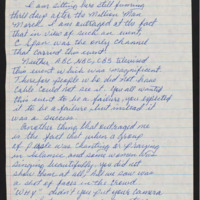 I am sitting here still fuming
three days after the Million Man
March. I am outraged at the fact
that in view of such an event,
C. Span was the only channel
that carried this event.
Neither ABC, NBC, CBS televised
this event which was magnificent.
Therefore people who did not have
Cable could not see it. You all wanted
this event to be a failure, you expected
it to be a failure, but instead it
was a success.
Another thing that outraged me
is the fact that when a group
of people was chanting or praying
in and some women were
singing beautifully. You did not
show them at all. All we saw was
a shot of faces in the crowd.
"Why" didn't you put your camera